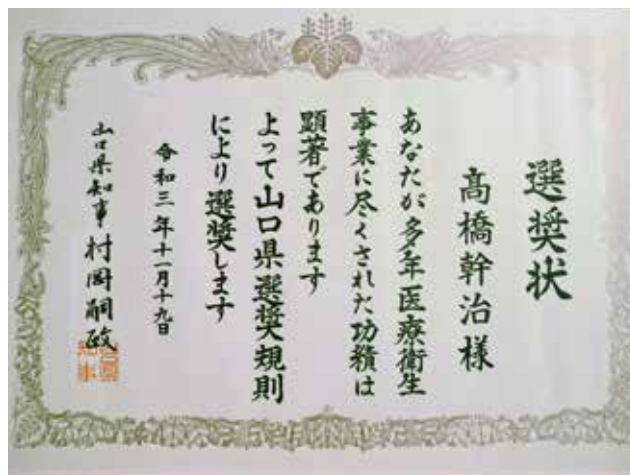 選奨状
髙橋幹治様
あなたが多年医療衛生
事業に尽くされた功績は
顕著であります
よって山口県選奨規則
により選奨します
令和三年十一月十九日
山口県知事 村岡嗣政